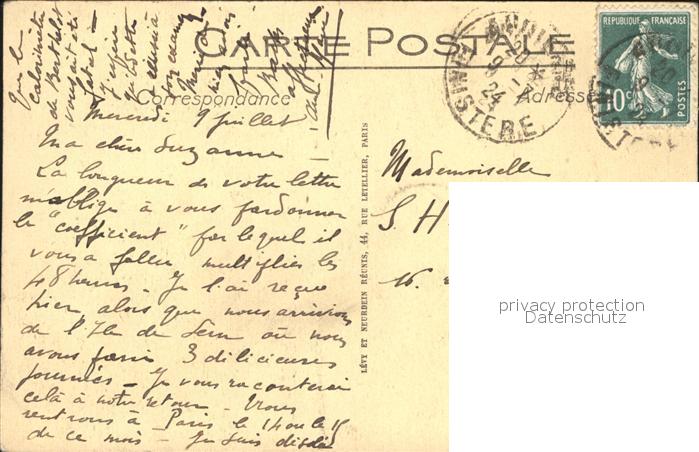 CARTE POSTALE
Correspondance
Adresse
RÉPUBLIQUE FRANÇAISE
10c
POSTES
FINISTERE
24
Que le
calorimètre
de Berthelot
vous ait été
fatal
J'espère
Mercredi 9 juillet
Ma chère Suzanne
La longueur de votre lettre
m'oblige à vous pardonner
le "coefficient" par lequel il
vous a fallu multiplier les
48 heures - Je l'ai reçue
hier alors que nous arrivions
de l'Ile de Sein où nous
avons passé 3 délicieuses
journées - Je vous raconterai
celà à notre retour - Nous
rentrons à Paris le 14 ou le 15
de ce mois - Je suis
LÉVY ET NEURDEIN RÉUNIS, 44, RUE LETELLIER, PARIS
Mademoiselle
S. H
16.
privacy protection
Datenschutz